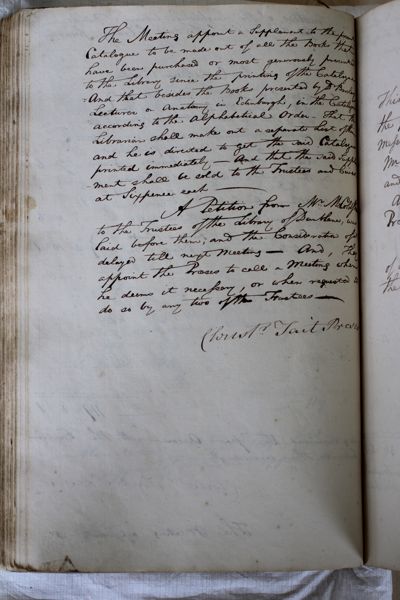 The Meeting appoint a Supplement to the
Catalogue to be made out of all the Books that
have been purchased or most generously
to the Library since the printing of the Catalogue
And that besides the Books presented by Dr
Lecturer on Anatomy in Edinburgh, in the Catalogue
according to the Alphabetical Order — that the
Librarian shall make out a separate List of
and he is directed to get the said Catalogue
printed immediately — And that the said Supple
ment shall be sold to the Trustees and
at Sixpence each
A Petition from Mr
to the Trustees of the Library of Dunblane, was
laid before them, and the Consideration of
delayed till next Meeting — And, they
appoint the Preses to call a Meeting when
he deems it necessary, or when required to
do so by any two of the Trustees —
Tait